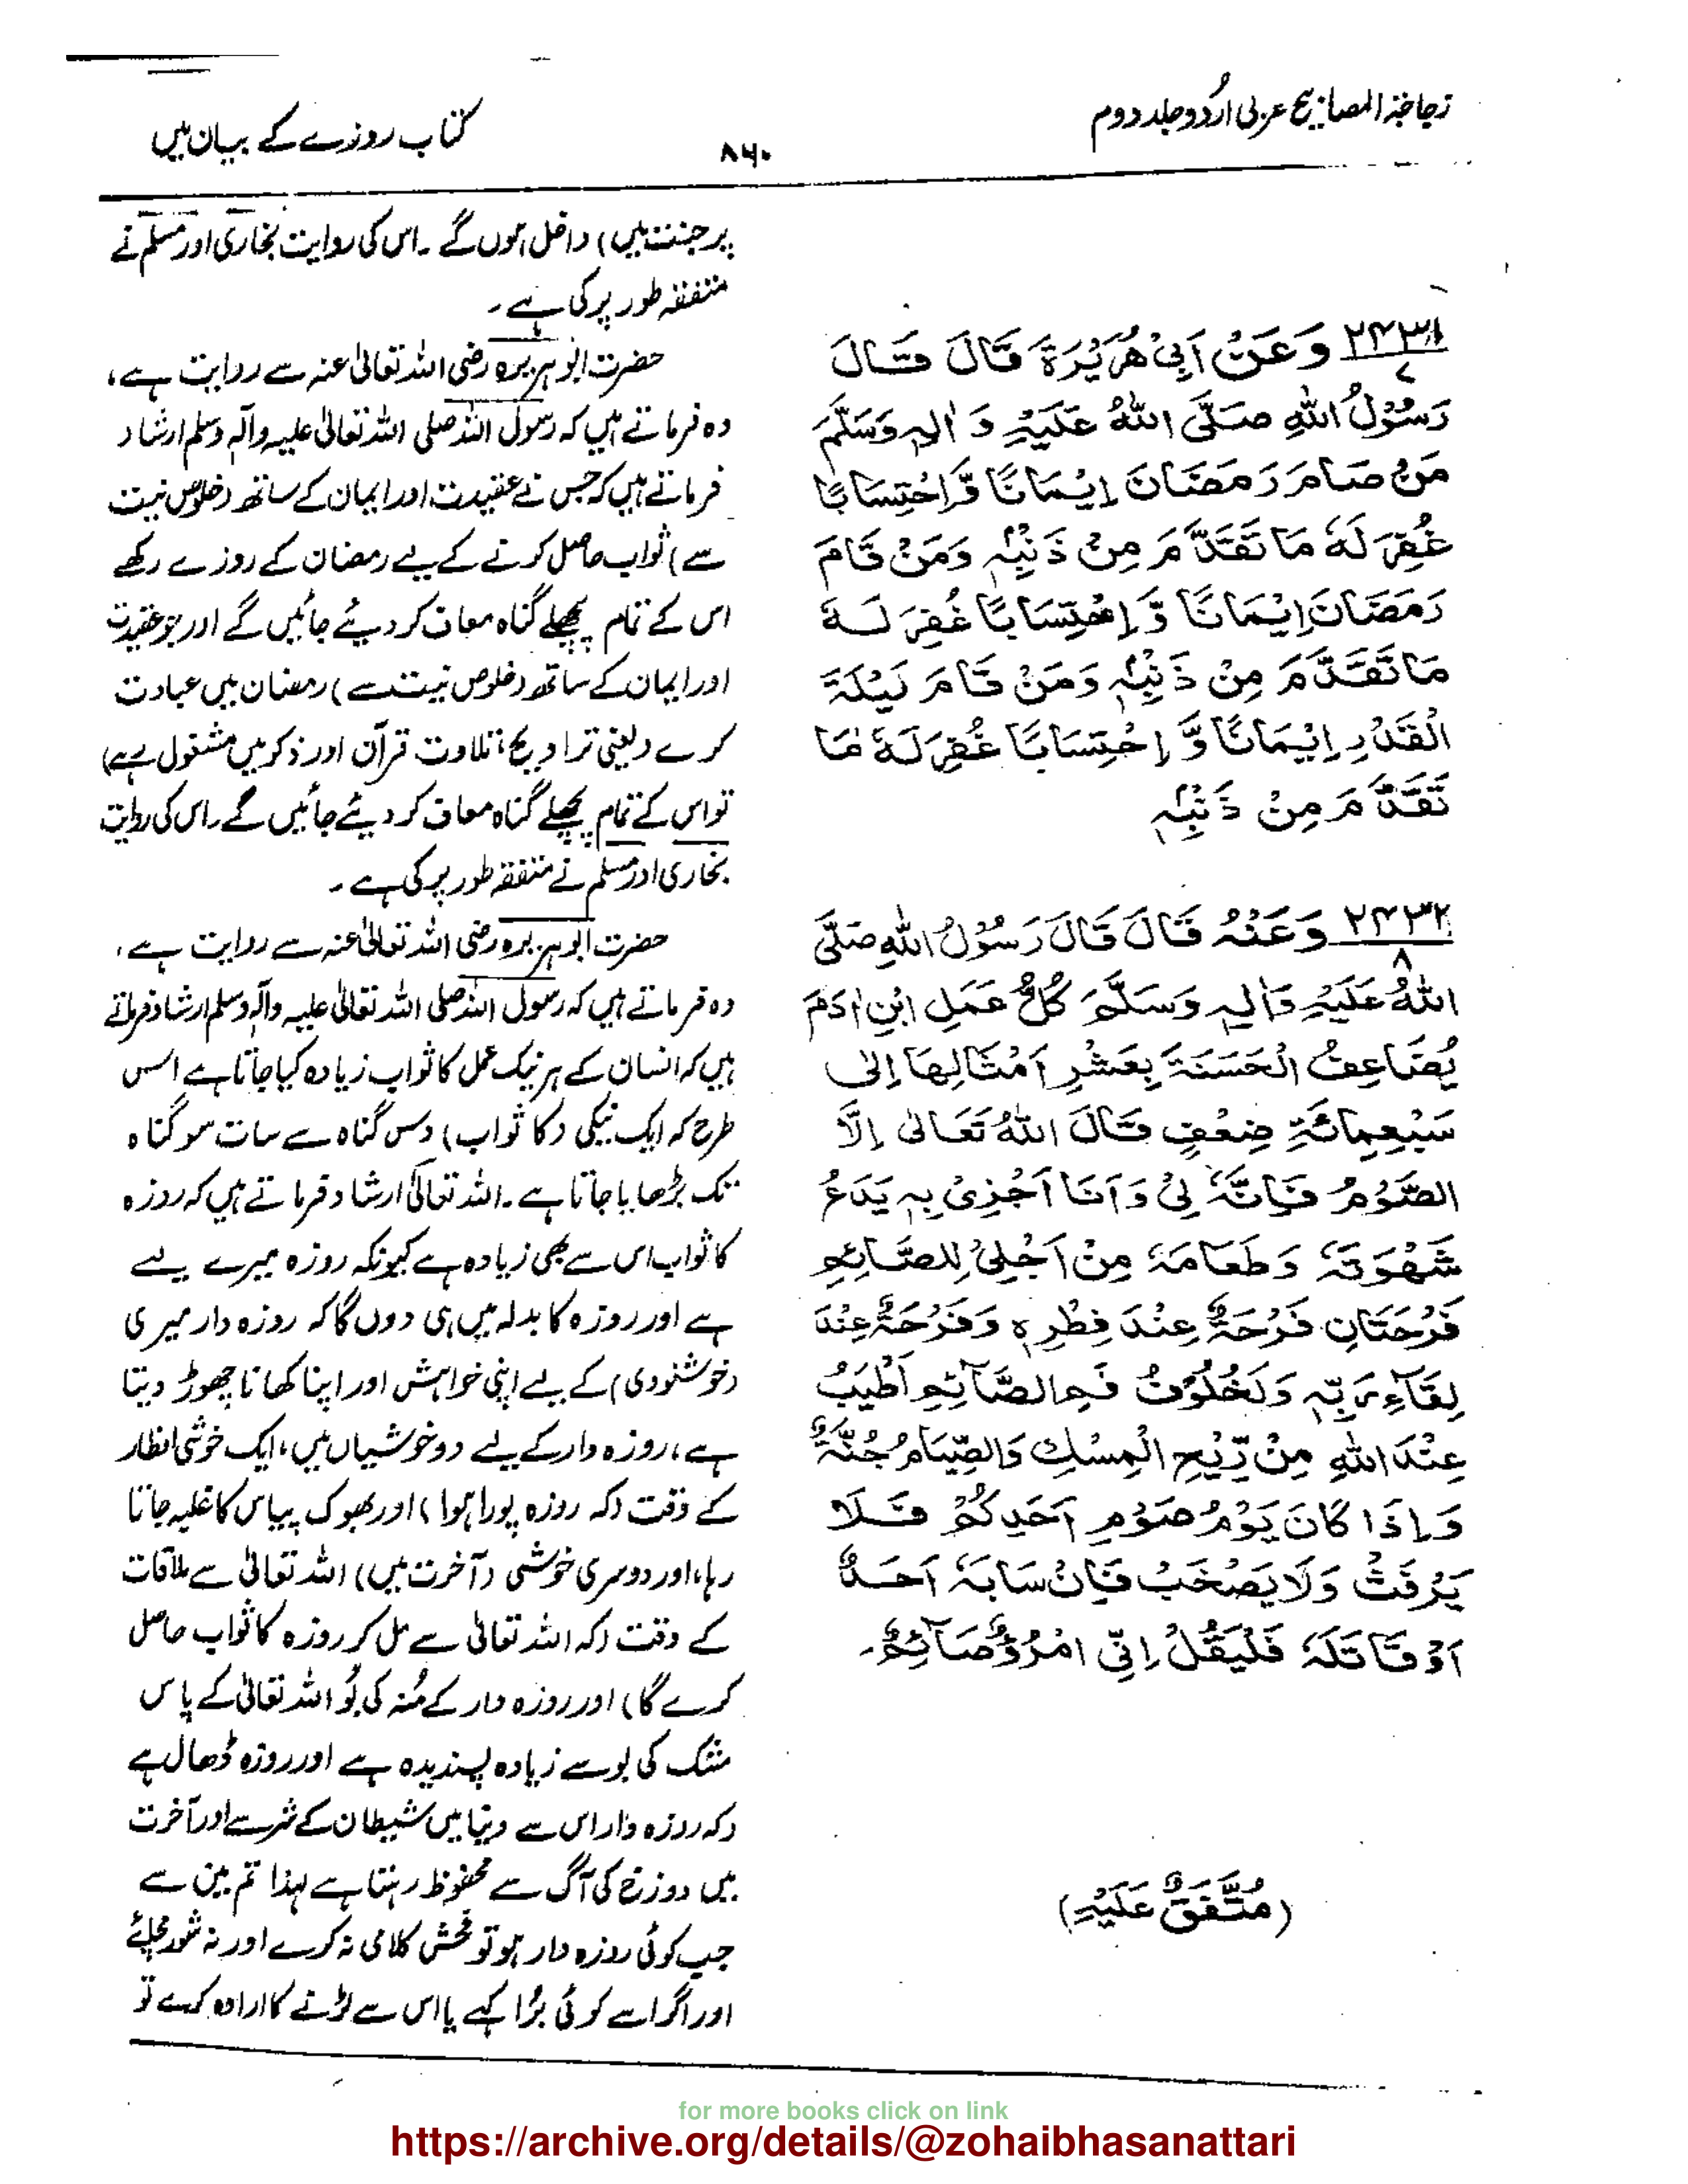 زجاجۃ المصابیح عربی اُردو جلد دوم
۸۶۰
کتاب روزے کے بیان میں
۲۴۳۱ وَعَنْ اَبِیْ هُرَیْرَةَ قَالَ قَالَ
۷
رَسُوْلُ اللهِ صَلَّی اللهُ عَلَیْهِ وَاٰلِهٖ وَسَلَّمَ
مَنْ صَامَ رَمَضَانَ اِیْمَانًا وَّاِحْتِسَابًا
غُفِرَ لَهٗ مَا تَقَدَّمَ مِنْ ذَنْبِهٖ وَمَنْ قَامَ
رَمَضَانَ اِیْمَانًا وَّاِحْتِسَابًا غُفِرَ لَهٗ
مَا تَقَدَّمَ مِنْ ذَنْبِهٖ وَمَنْ قَامَ لَیْلَةَ
الْقَدْرِ اِیْمَانًا وَّاِحْتِسَابًا غُفِرَ لَهٗ مَا
تَقَدَّمَ مِنْ ذَنْبِهٖ
۲۴۳۲ وَعَنْهُ قَالَ قَالَ رَسُوْلُ اللهِ صَلَّی
۸
اللهُ عَلَیْهِ وَاٰلِهٖ وَسَلَّمَ کُلُّ عَمَلِ ابْنِ اٰدَمَ
یُضَاعِفُ الْحَسَنَةَ بِعَشْرِ اَمْثَالِهَا اِلٰی
سَبْعِمِائَةِ ضِعْفٍ قَالَ اللهُ تَعَالٰی اِلَّا
الصَّوْمُ فَاِنَّهٗ لِیْ وَاَنَا اَجْزِیْ بِهٖ یَدَعُ
شَهْوَتَهٗ وَطَعَامَهٗ مِنْ اَجْلِیْ لِلصَّائِمِ
فَرْحَتَانِ فَرْحَةٌ عِنْدَ فِطْرِهٖ وَفَرْحَةٌ عِنْدَ
لِقَآءِ رَبِّهٖ وَلَخُلُوْفُ فَمِ الصَّآئِمِ اَطْیَبُ
عِنْدَ اللهِ مِنْ رِّیْحِ الْمِسْكِ وَالصِّیَامُ جُنَّةٌ
وَاِذَا کَانَ یَوْمُ صَوْمِ اَحَدِکُمْ فَلَا
یَرْفَثْ وَلَا یَصْخَبْ فَاِنْ سَابَهٗ اَحَدٌ
اَوْ قَاتَلَهٗ فَلْیَقُلْ اِنِّی امْرُؤٌ صَآئِمٌ۔
(مُتَّفَقٌ عَلَیْهِ)
پر جنت میں) داخل ہوں گے ۔ اس کی روایت بخاری اور مسلم نے
متفقہ طور پر کی ہے۔
حضرت ابو ہریرہ رضی اللہ تعالیٰ عنہ سے روایت ہے،
وہ فرماتے ہیں کہ رسول اللہ صلی اللہ تعالیٰ علیہ وآلہ وسلم ارشاد
فرماتے ہیں کہ جس نے عقیدت اور ایمان کے ساتھ (خلوص نیت
سے) ثواب حاصل کرنے کے لیے رمضان کے روزے رکھے
اس کے تمام پچھلے گناہ معاف کر دیئے جائیں گے اور جو عقیدت
اور ایمان کے ساتھ (خلوص نیت سے) رمضان میں عبادت
کرے (یعنی تراویح، تلاوت قرآن اور ذکر میں مشغول رہے)
تو اس کے تمام پچھلے گناہ معاف کر دیئے جائیں گے۔ اس کی روایت
بخاری اور مسلم نے متفقہ طور پر کی ہے۔
حضرت ابو ہریرہ رضی اللہ تعالیٰ عنہ سے روایت ہے،
وہ فرماتے ہیں کہ رسول اللہ صلی اللہ تعالیٰ علیہ وآلہ وسلم ارشاد فرماتے
ہیں کہ انسان کے ہر نیک عمل کا ثواب زیادہ کیا جاتا ہے اس
طرح کہ ایک نیکی (کا ثواب) دس گناہ سے سات سو گناہ
تک بڑھایا جاتا ہے۔ اللہ تعالیٰ ارشاد فرماتے ہیں کہ روزہ
کا ثواب اس سے بھی زیادہ ہے کیونکہ روزہ میرے لیے
ہے اور روزہ کا بدلہ میں ہی دوں گا کہ روزہ دار میری
(خوشنودی) کے لیے اپنی خواہش اور اپنا کھانا چھوڑ دیتا
ہے، روزہ دار کے لیے دو خوشیاں ہیں، ایک خوشی افطار
کے وقت (کہ روزہ پورا ہوا) اور بھوک پیاس کا غلبہ جاتا
رہا، اور دوسری خوشی (آخرت میں) اللہ تعالیٰ سے ملاقات
کے وقت (کہ اللہ تعالیٰ سے مل کر روزہ کا ثواب حاصل
کرے گا) اور روزہ دار کے مُنہ کی بُو اللہ تعالیٰ کے پاس
مشک کی بو سے زیادہ پسندیدہ ہے اور روزہ ڈھال ہے
(کہ روزہ دار اس سے دنیا میں شیطان کے شر سے اور آخرت
میں دوزخ کی آگ سے محفوظ رہتا ہے لہذا تم میں سے
جب کوئی روزہ دار ہو تو فحش کلامی نہ کرے اور نہ شور مچائے
اور اگر اسے کوئی بُرا کہے یا اس سے لڑنے کا ارادہ کرے تو
for more books click on link
https://archive.org/details/@zohaibhasanattari